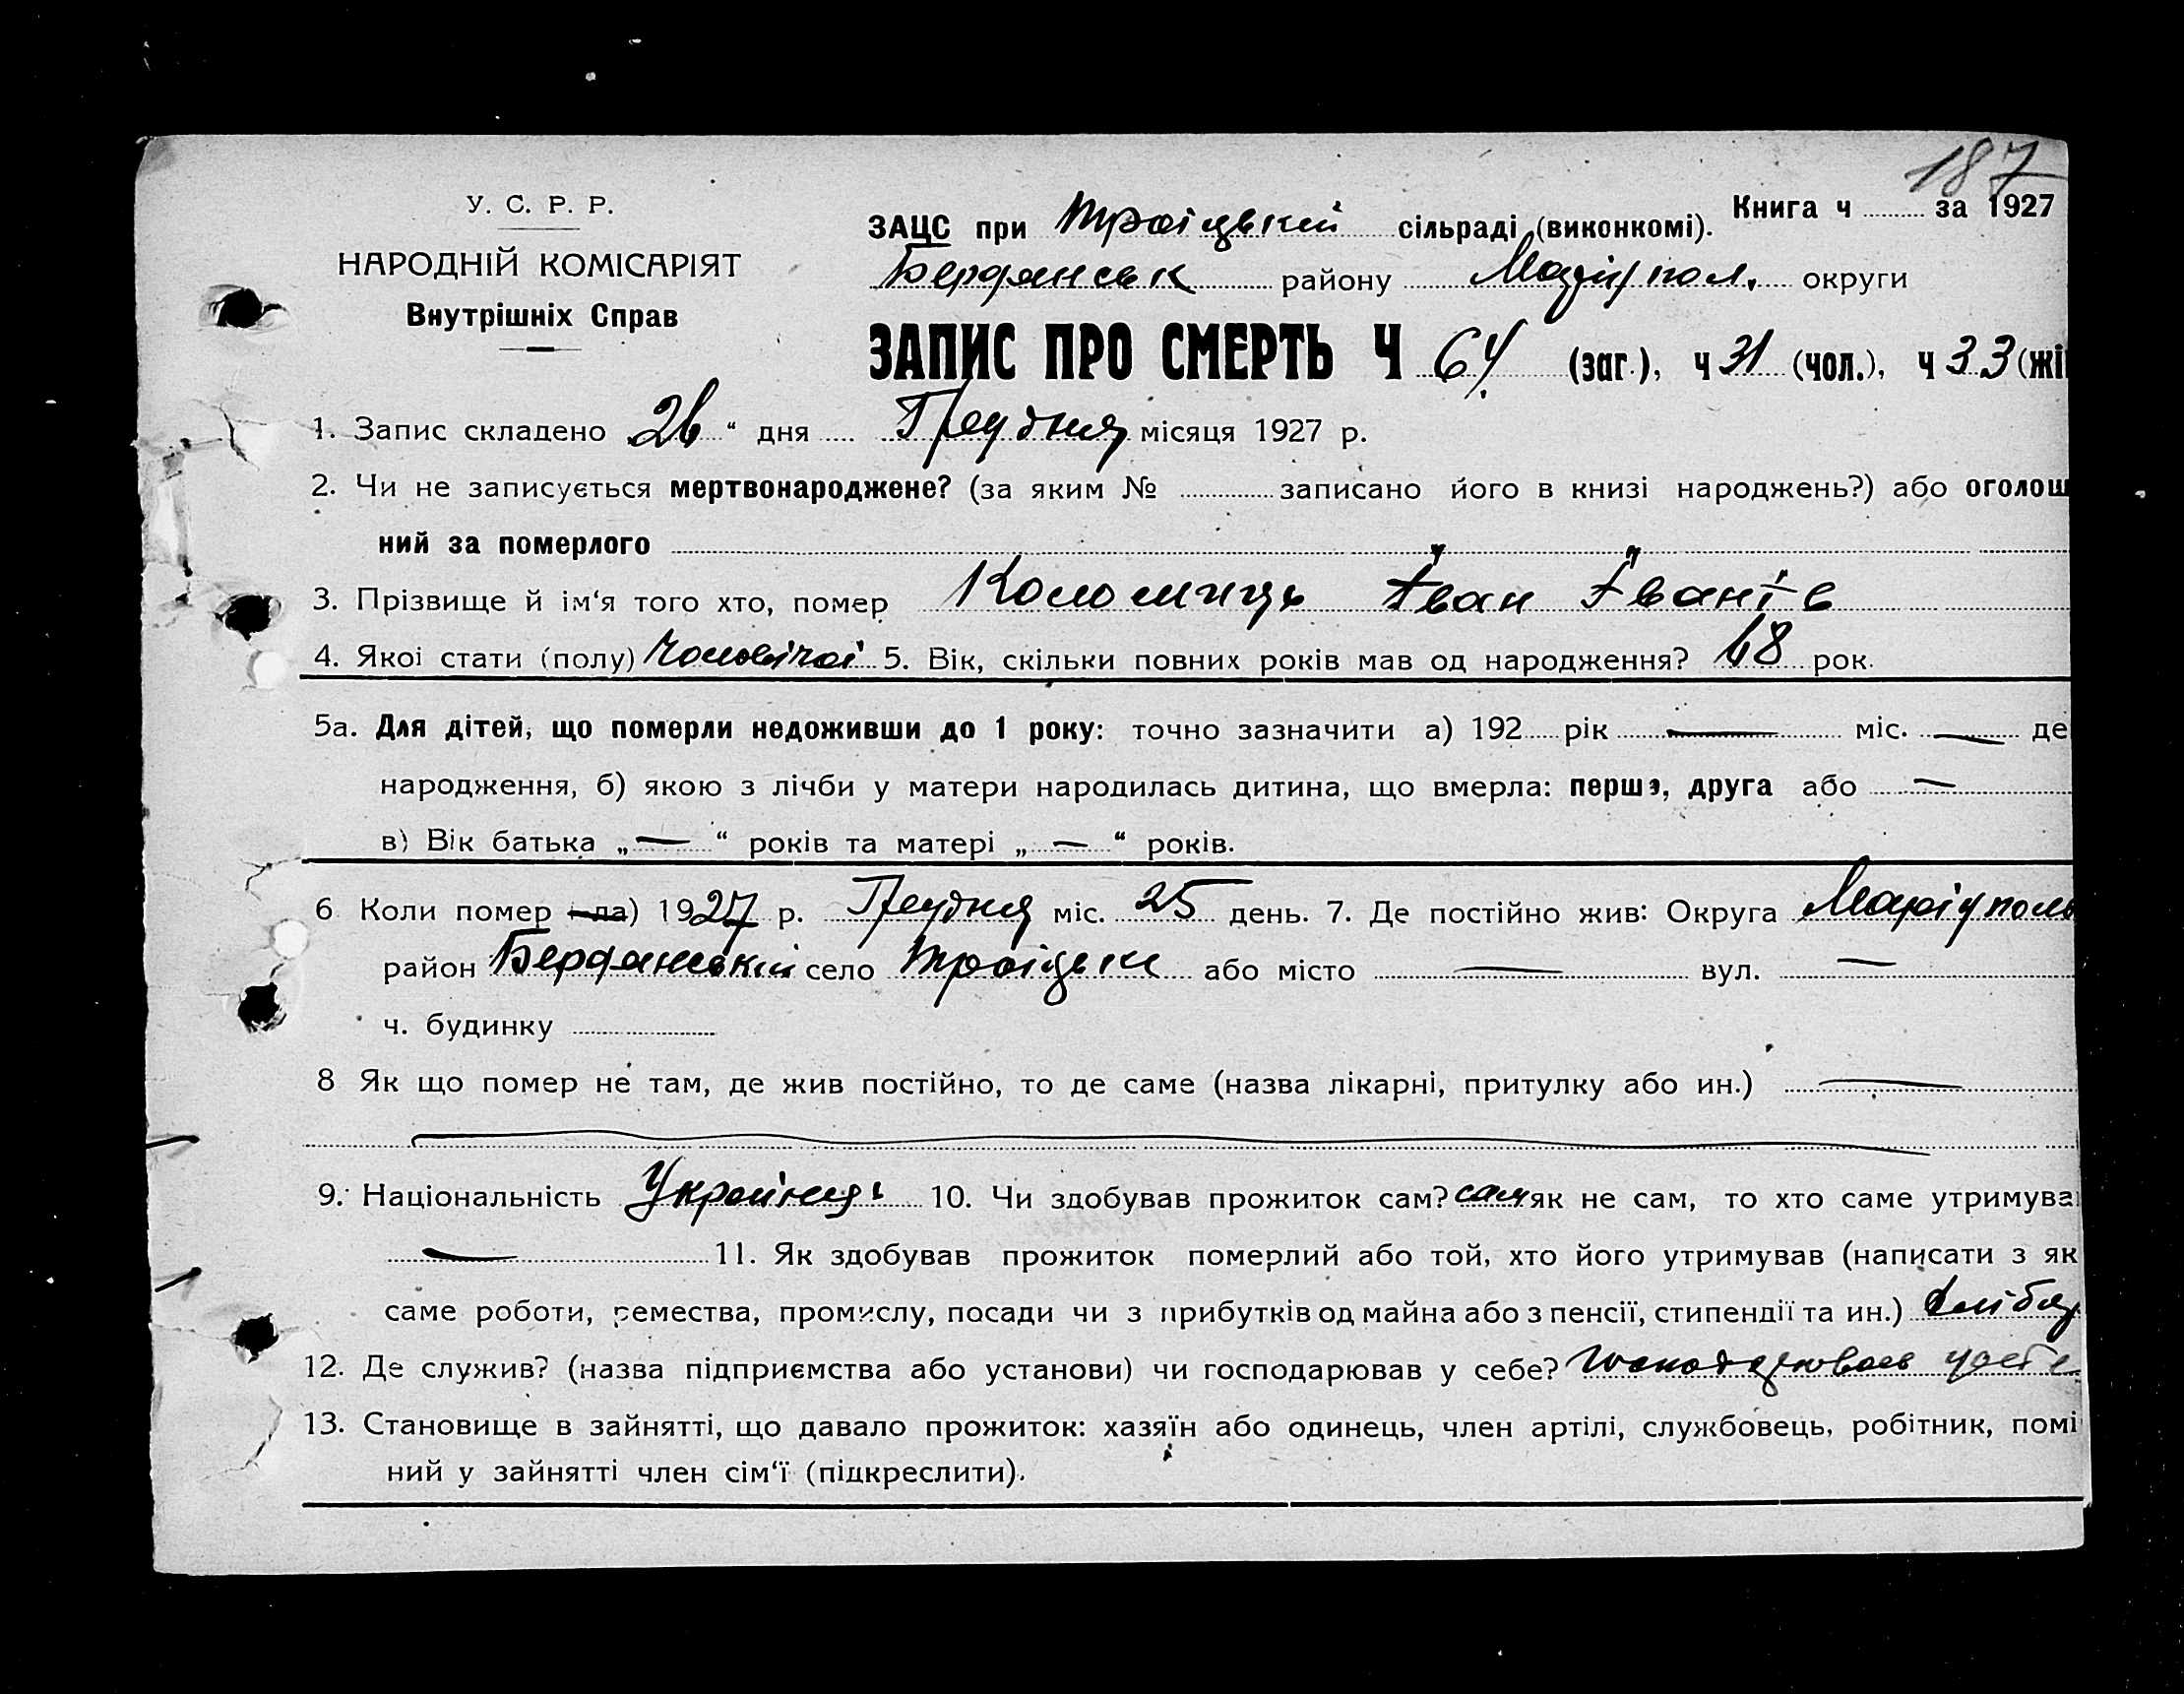 187
У. С. Р. Р.
НАРОДНІЙ КОМІСАРІЯТ
Внутрішніх Справ
Книга ч ... за 1927
ЗАЦС при Троіцькій сільраді (виконкомі).
Бердянськ району Маріупол. округи
ЗАПИС ПРО СМЕРТЬ Ч 64 (заг.), ч 31 (чол.), ч 33 (жі
1. Запис складено 26 “ дня Грудня місяця 1927 р.
2. Чи не записується мертвонароджене? (за яким № ... записано його в книзі народжень?) або оголош
ний за померлого
3. Прізвище й ім‘я того хто, помер Коломиць Іван Іванів
4. Якоі стати (полу) Чоловічоі 5. Вік, скільки повних років мав од народження? 68 рок.
5а. Для дітей, що померли недоживши до 1 року: точно зазначити а) 192 ... рік — міс. — де
народження, б) якою з лічби у матери народилась дитина, що вмерла: перша, друга або —
в) Вік батька „ — “ років та матері „ — “ років.
6 Коли помер (-ла) 1927 р. Грудня міс. 25 день. 7. Де постійно жив: Округа Маріуполь
район Бердянській село Троіцьк або місто — вул. —
ч. будинку
8 Як що помер не там, де жив постійно, то де саме (назва лікарні, притулку або ин.) —
9. Національність Украінець 10. Чи здобував прожиток сам? сам як не сам, то хто саме утримува
— 11. Як здобував прожиток померлий або той, хто його утримував (написати з як
саме роботи, ремества, промислу, посади чи з прибутків од майна або з пенсії, стипендії та ин.)
12. Де служив? (назва підприємства або установи) чи господарював у себе?
13. Становище в зайнятті, що давало прожиток: хазяїн або одинець, член артілі, службовець, робітник, помі
ний у зайнятті член сім‘ї (підкреслити).